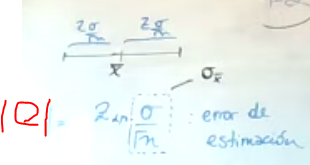 Zσ/√n Zσ/√n
x̄
σx̄
|Q| = Zα/2 σ/√n : error de
estimación